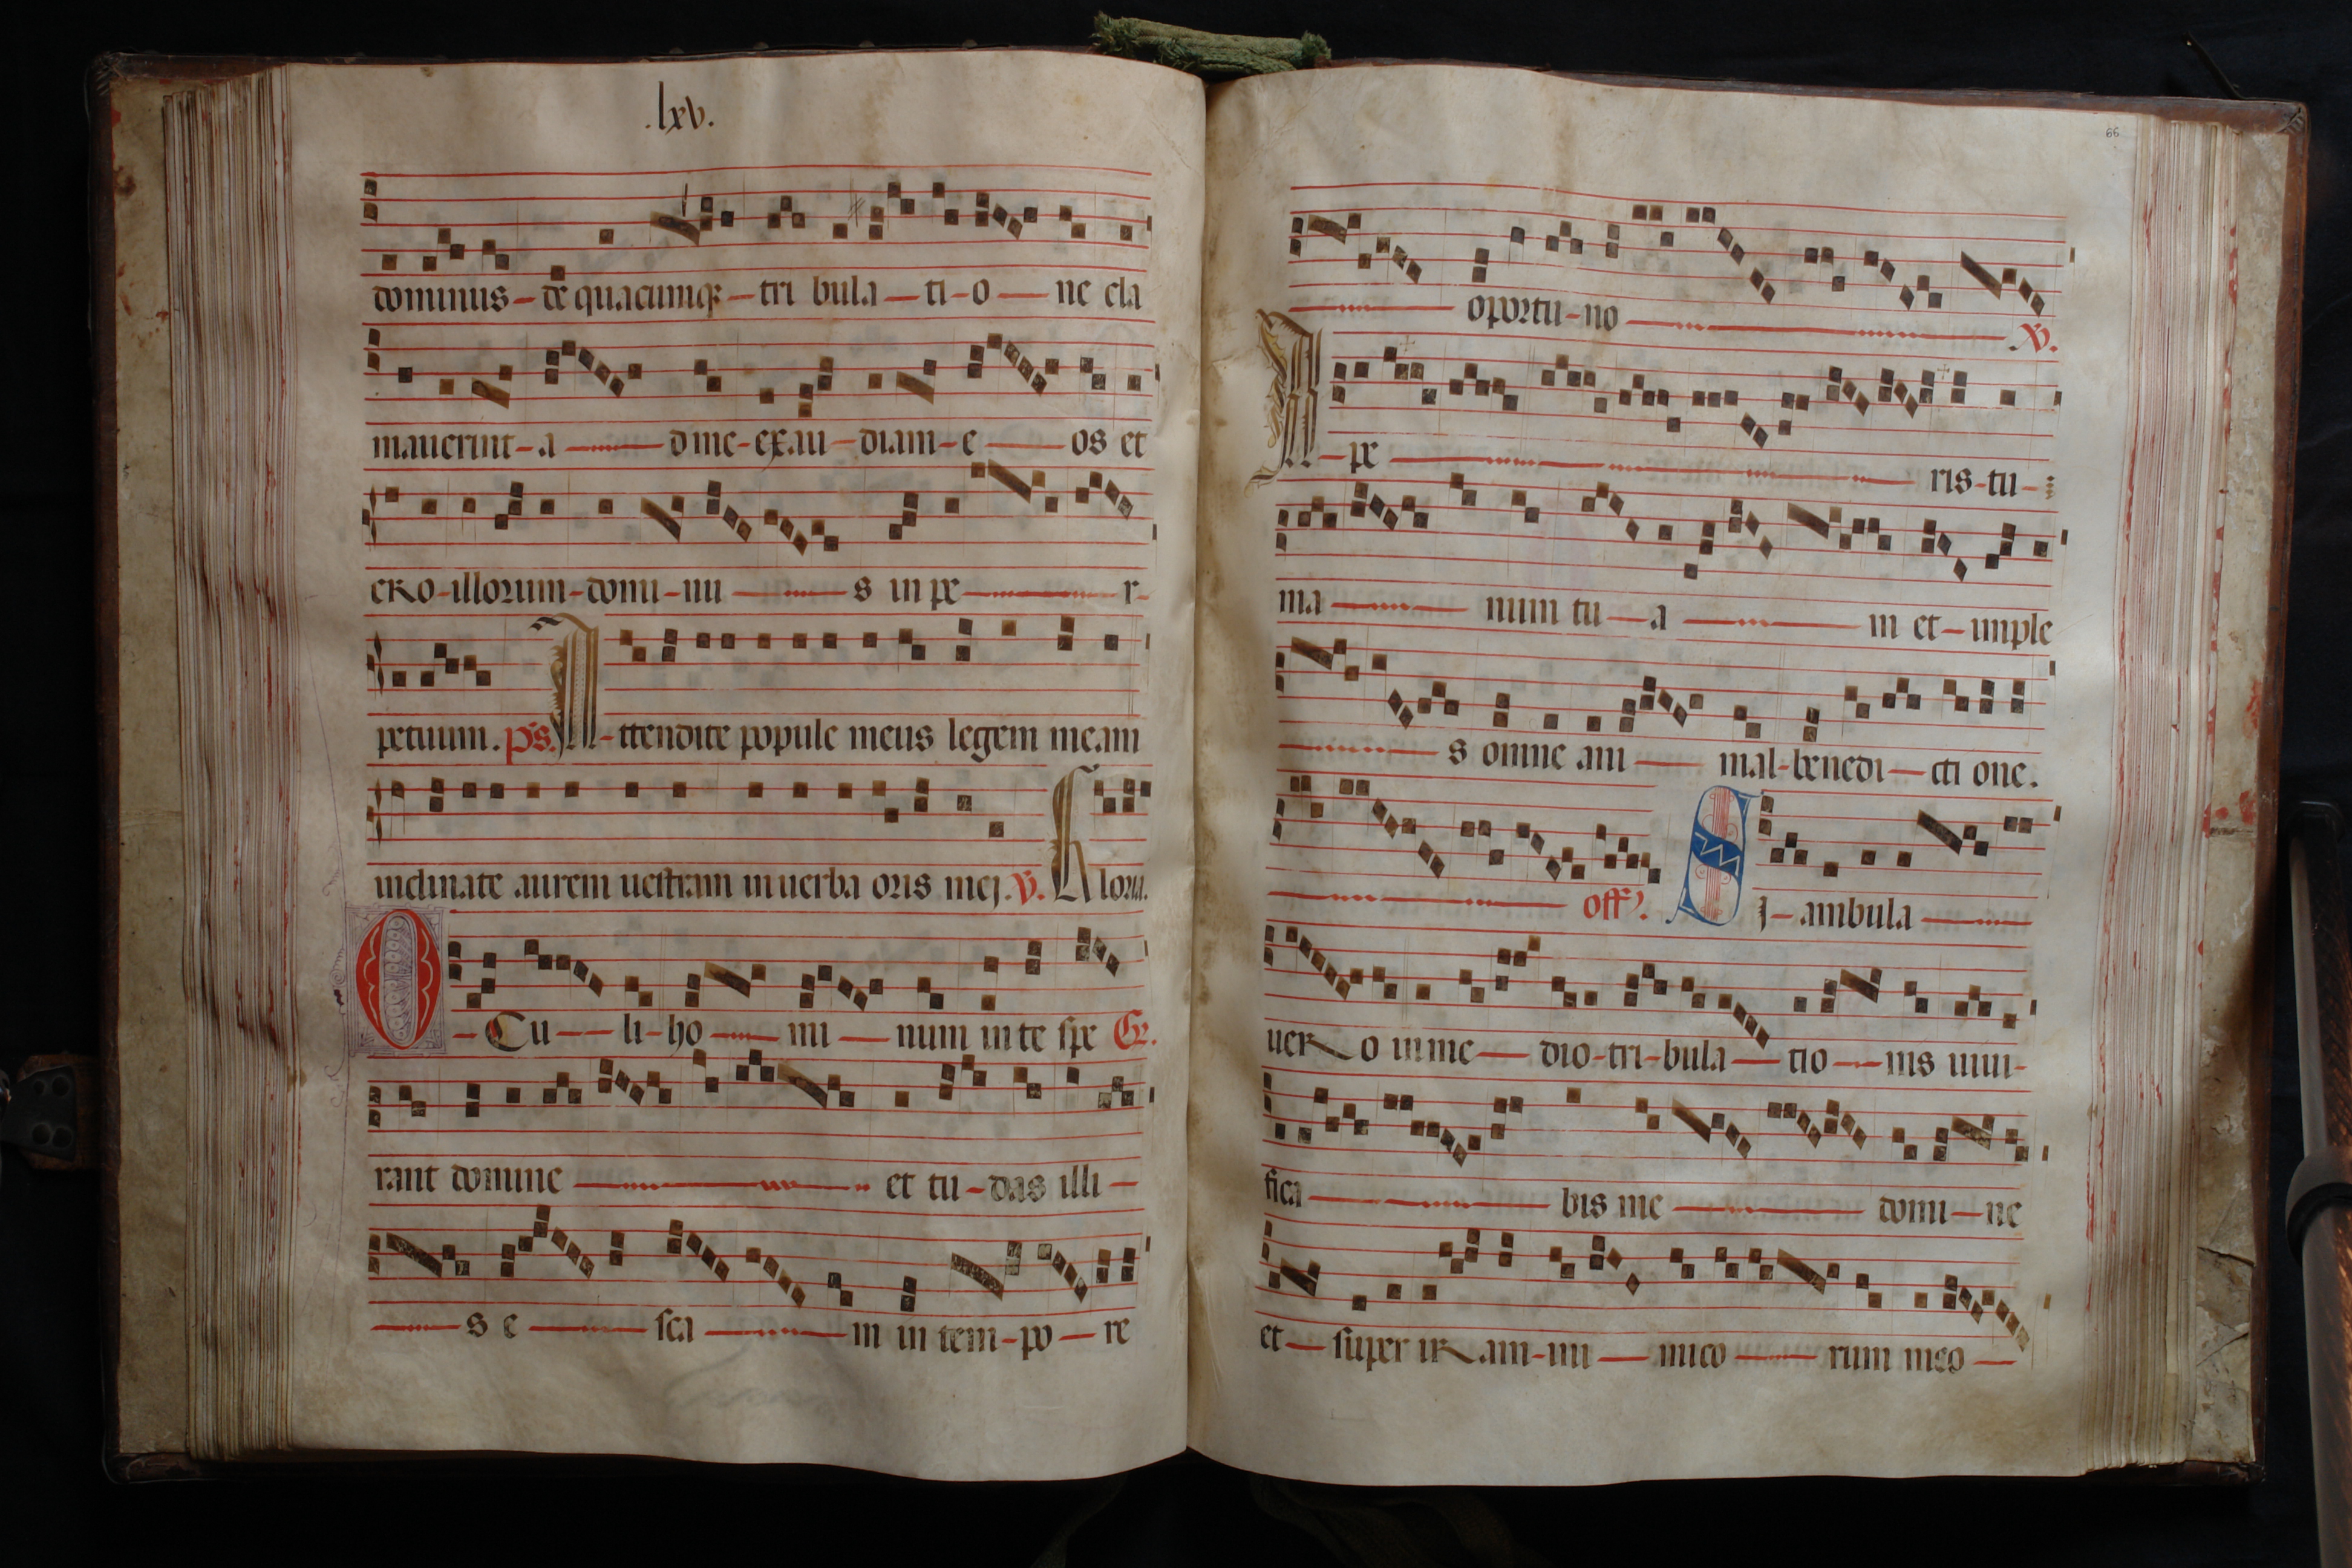 .lxv.
dominus de quacumqz tri bula ti o ne cla
mauerint a d me exau diam e os et
ero illorum domi nu s in pe r
petuum. ps. Attendite popule meus legem meam
inclinate aurem uestram in uerba oris mej. V. Gloria.
OCu li ho mi num in te spe Gr.
rant domine et tu das illi
s e sca m in tem po re
66
oportu no V.
Ape ris tu
ma num tu a m et imple
s omne ani mal benedi cti one.
off. SJ ambula
uero in me dio tri bula tio nis uiui
fica bis me domi ne
et super iram ini mico rum meo